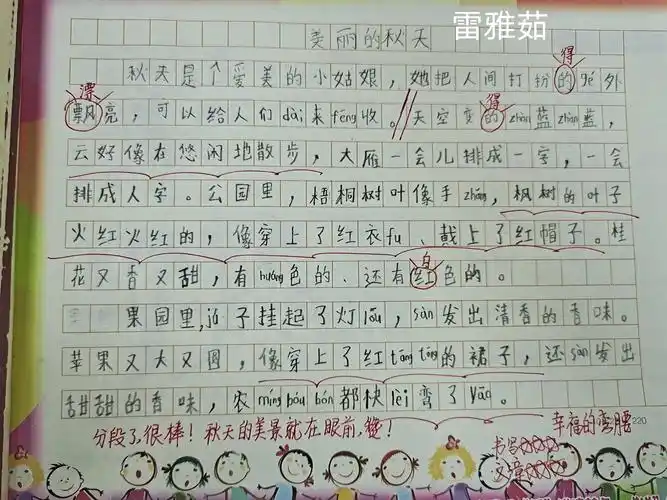 雷雅茹
美丽的秋天
秋天是个爱美的小姑娘，她把人间打扮的gé外
得
飘亮，可以给人们dài来fēng收。//天空变的zhàn蓝zhàn蓝，
漂
得
云好像在悠闲地散步，大雁一会儿排成一字，一会
排成人字。公园里，梧桐树叶像手zhǎng，枫树的叶子
火红火红的，像穿上了红衣fu、戴上了红帽子。桂
花又香又甜，有huáng色的、还有红色的。
白
果园里，jú子挂起了灯lóu，sàn发出清香的香味。
苹果又大又圆，像穿上了红tōng tōng的裙子，还sàn发出
甜甜的香味，农mín póu bón都快lèi弯了yāo。
220
分段了，很棒！秋天的美景就在眼前，赞！
幸福的弯腰
书写☆☆☆
文章☆☆☆